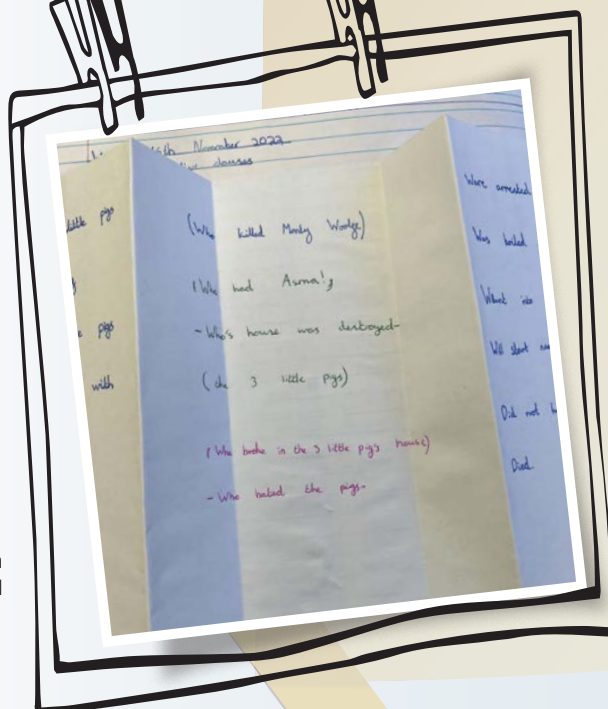 6th November 2022
clauses
little pigs
pigs
with
(Who killed Wordge)
(Who had
-Who's house was destroyed-
(the 3 little pigs)
(Who broke in the 3 little pig's house)
-Who hated the pigs-
Were arrested
Was boiled
Whent into
Will start
Did not
Died.